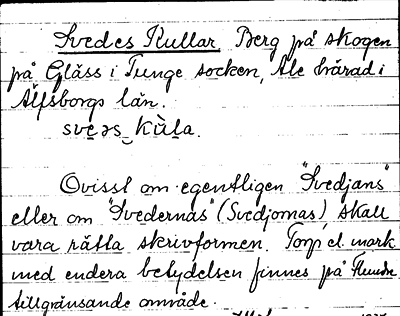 Svedes Kullar, Berg på skogen
på Gläss i Tunge socken, Ale härad i
Älfsborgs län.
svɛəs_kùla.
Ovisst om egentligen "Svedjans"
eller om "Svedernas" (Svedjornas) skall
vara rätta skrivformen. Torp el. mark
med endera betydelsen finnes på
tillgränsande område.